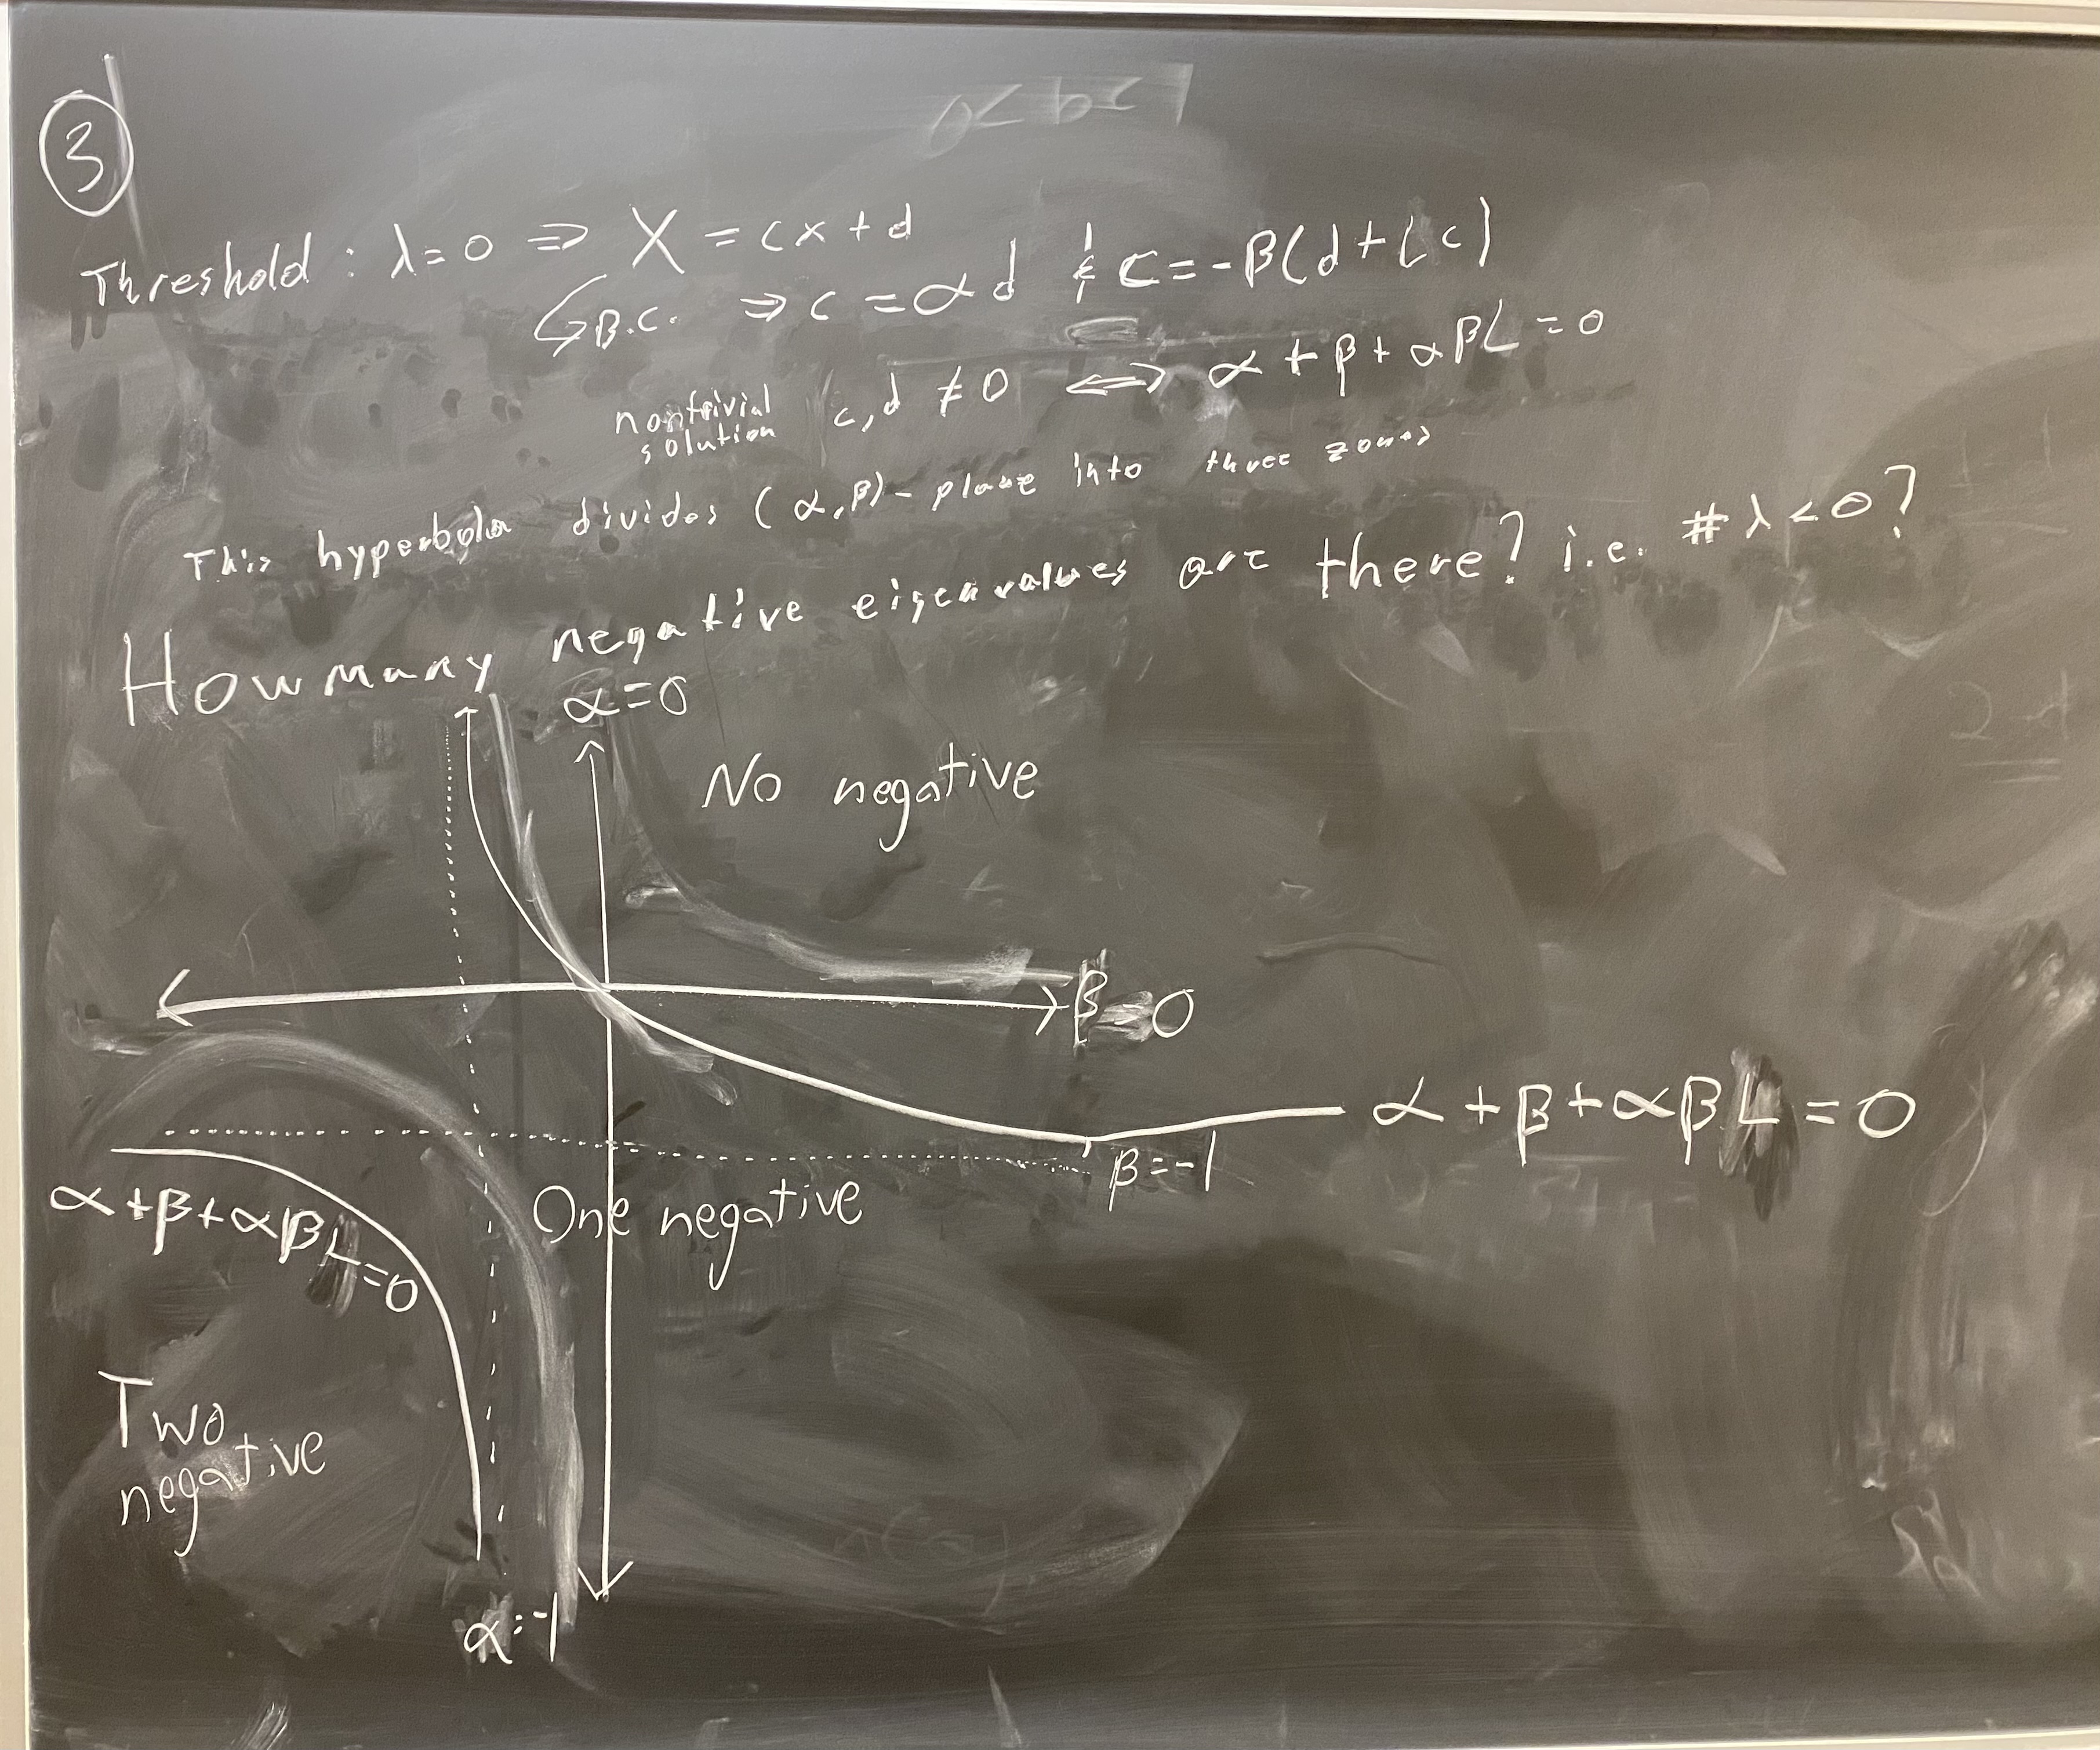 ③
Threshold : λ=0 ⇒ X = cx + d
↳ B.C. ⇒ c = αd & C = -β(d+Lc)
nontrivial solution c,d ≠ 0 ⟺ α + β + αβL = 0
This hyperbola divides (α,β)-plane into three zones
How many negative eigenvalues are there? i.e. # λ<0?
α=0
No negative
β=0
α+β+αβL=0
β=-1
α+β+αβL=0
One negative
Two
negative
α=-1